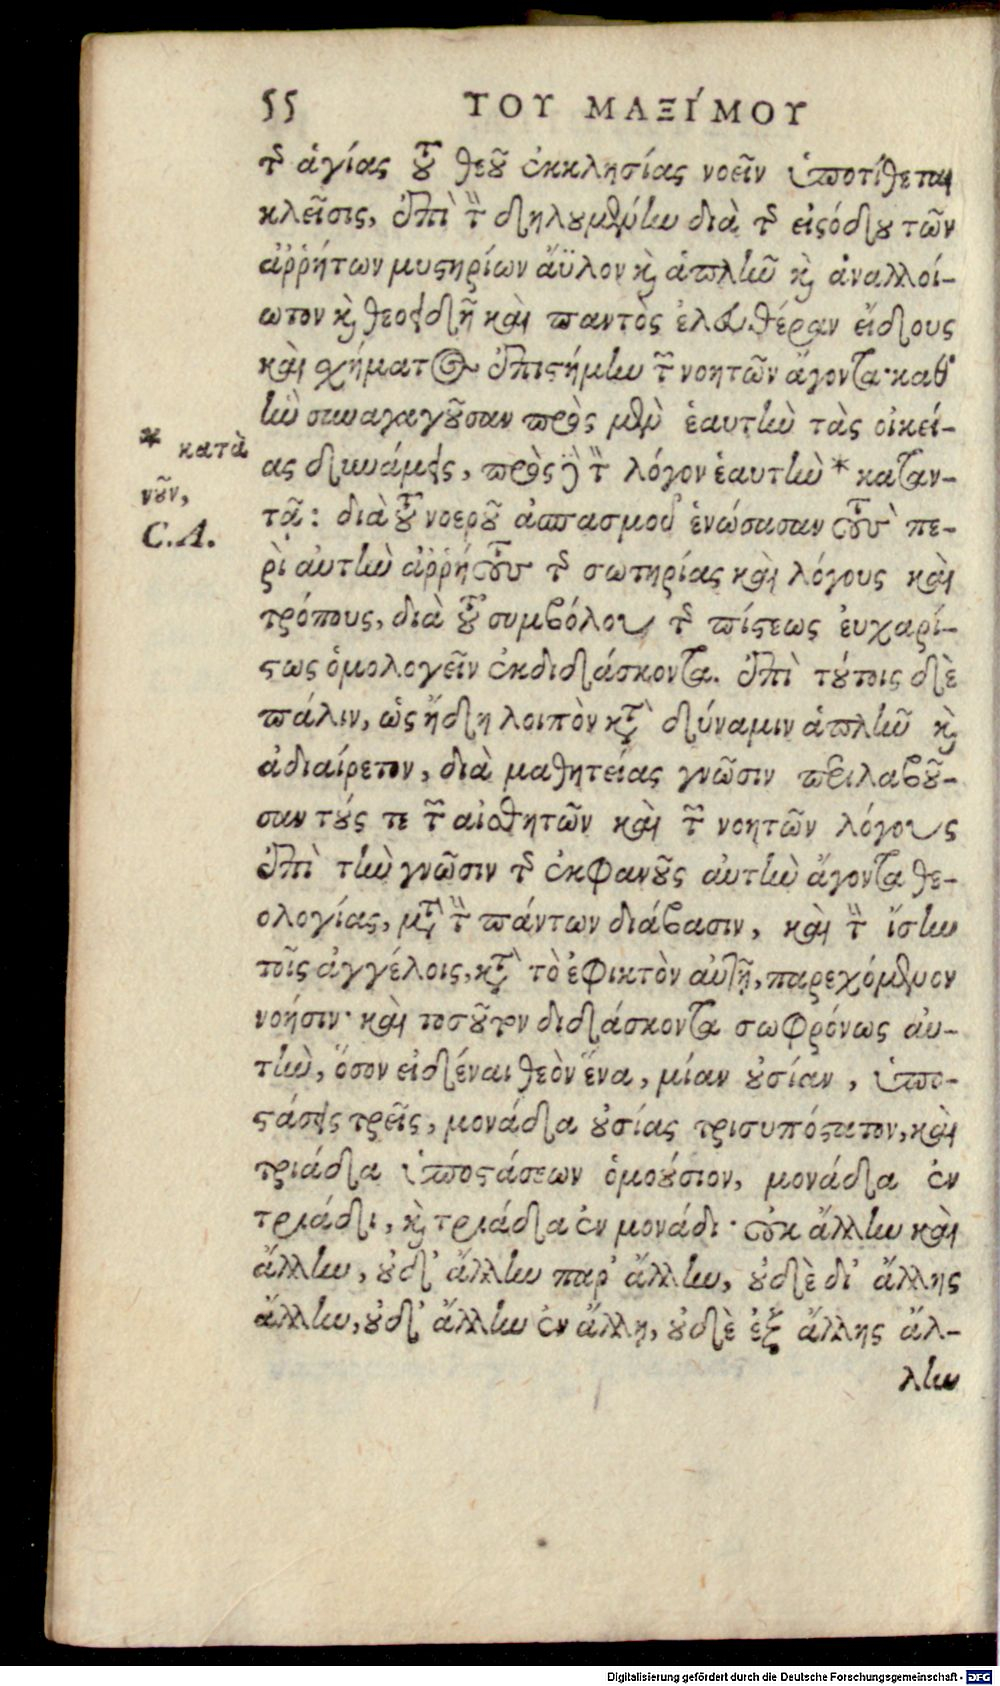 55 ΤΟΥ ΜΑΞΙ´ΜΟΥ
τῆς ἁγίας τοῦ θεοῦ ἐκκλησίας νοεῖν ὑποτίθεται
κλεῖσις, ἐπὶ τὴν δηλουμένην διὰ τῆς εἰσόδου τῶν
ἀῤῥήτων μυστηρίων ἄϋλον καὶ ἁπλῆν καὶ ἀναλλοί-
ωτον καὶ θεοειδῆ καὶ παντὸς ἐλευθέραν εἴδους
καὶ σχήματος ἐπιστήμην τῶν νοητῶν ἄγοντα· καθ'
ἣν συναγαγοῦσαν πρὸς μὲν ἑαυτὴν τὰς οἰκεί-
ας δυνάμεις, πρὸς δὲ τὸν λόγον ἑαυτὴν * καταν-
* κατὰ
νοῦν,
C.A.
τᾷ: διὰ τοῦ νοεροῦ ἀσπασμοῦ ἑνώσασαν τοὺς πε-
ρὶ αὐτὴν ἀῤῥήτους τῆς σωτηρίας καὶ λόγους καὶ
τρόπους, διὰ τοῦ συμβόλου τῆς πίστεως εὐχαρί-
στως ὁμολογεῖν ἐκδιδάσκοντα. ἐπὶ τούτοις δὲ
πάλιν, ὡς ἤδη λοιπὸν κατὰ δύναμιν ἁπλῆν καὶ
ἀδιαίρετον, διὰ μαθητείας γνῶσιν περιλαβοῦ-
σαν τούς τε τῶν αἰσθητῶν καὶ τῶν νοητῶν λόγους
ἐπὶ τὴν γνῶσιν τῆς ἐκφανοῦς αὐτὴν ἄγοντα θε-
ολογίας, μετὰ τὴν πάντων διάβασιν, καὶ τὴν ἴσην
τοῖς ἀγγέλοις, κατὰ τὸ ἐφικτὸν αὐτῇ, παρεχόμενον
νοήσιν· καὶ τοσοῦτον διδάσκοντα σωφρόνως αὐ-
τὴν, ὅσον εἰδέναι θεὸν ἕνα, μίαν οὐσίαν, ὑπο-
στάσεις τρεῖς, μονάδα οὐσίας τρισυπόστατον, καὶ
τριάδα ὑποστάσεων ὁμοούσιον, μονάδα ἐν
τριάδι, καὶ τριάδα ἐν μονάδι· οὐκ ἄλλην καὶ
ἄλλην, οὐδ' ἄλλην παρ' ἄλλην, οὐδὲ δι' ἄλλης
ἄλλην, οὐδ' ἄλλην ἐν ἄλλῃ, οὐδὲ ἐξ ἄλλης ἄλ-
λην
Digitalisierung gefördert durch die Deutsche Forschungsgemeinschaft - DFG